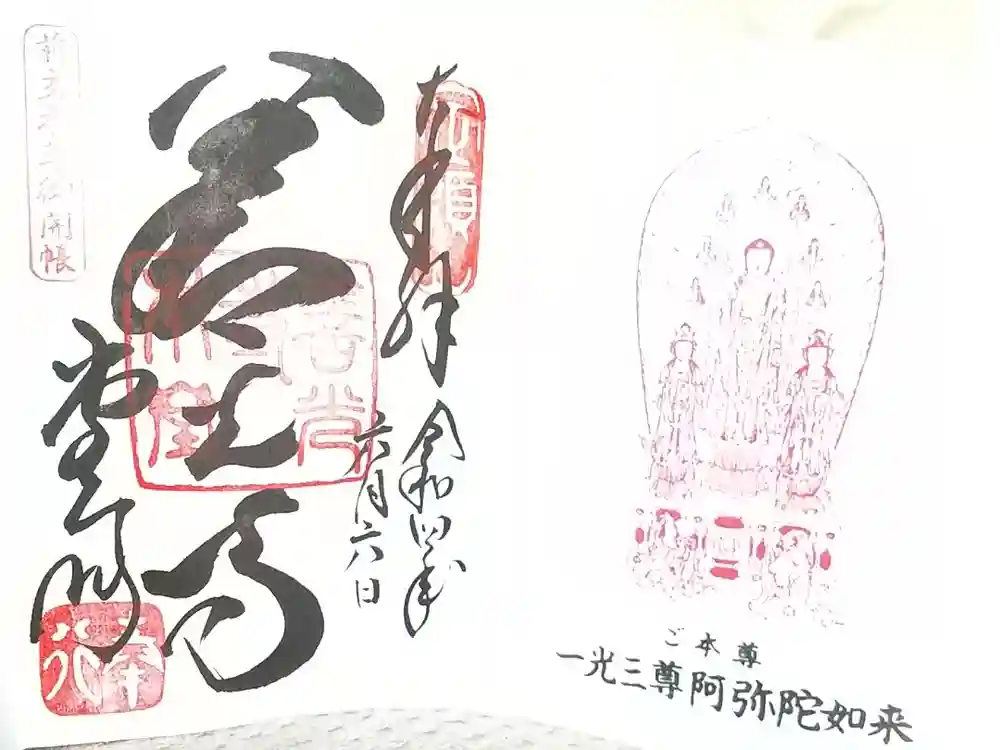 奉拝
令和四年
六月六日
善光寺
堂照坊
前立本尊御開帳
ご本尊
一光三尊阿弥陀如来